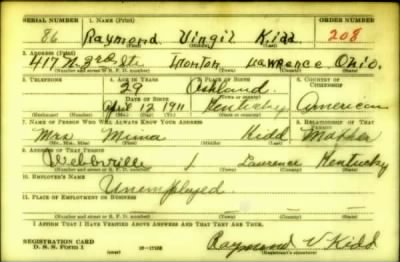 SERIAL NUMBER 1. NAME (Print) ORDER NUMBER
86 Raymond Virgil Kidd 208
(First) (Middle) (Last)
3. ADDRESS (Print)
417 N. 3rd St. Ironton Lawrence Ohio.
(Number and street or R. F. D. number) (Town) (County) (State)
3. TELEPHONE 4. AGE IN YEARS 5. PLACE OF BIRTH 6. COUNTRY OF CITIZENSHIP
29 Ashland
DATE OF BIRTH (Town or county)
12 1911 Kentucky American
(Mo.) (Day) (Yr.) (State or country)
7. NAME OF PERSON WHO WILL ALWAYS KNOW YOUR ADDRESS 8. RELATIONSHIP OF THAT PERSON
Mrs Kidd Mother
(Mr., Mrs., Miss) (First) (Middle) (Last)
9. ADDRESS OF THAT PERSON
Webbville Lawrence Kentucky
(Number and street or R. F. D. number) (Town) (County) (State)
10. EMPLOYER'S NAME
Unemployed.
11. PLACE OF EMPLOYMENT OR BUSINESS
(Number and street or R. F. D. number) (Town) (County) (State)
I AFFIRM THAT I HAVE VERIFIED ABOVE ANSWERS AND THAT THEY ARE TRUE.
REGISTRATION CARD
D. S. S. Form 1 (over) Raymond V Kidd
(Registrant's signature)